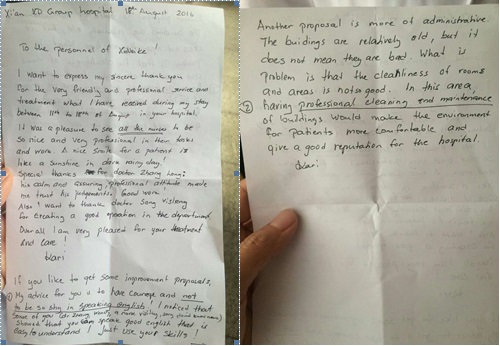 Xi'an XD Group hospital 18th August 2016
To the personnel of
I want to express my sincere thank you
for the very friendly and professional service and
treatment what I have received during my stay
between 11th to 18th of August in your hospital.
It was a pleasure to see all the nurses to be
so nice and very professional in their tasks
and work. A nice smile for a patient is
like a sunshine in dark rainy day!
Special thanks for doctor Zhang Long;
his calm and assuring, professional attitude made
me trust his judgements. Good work!
Also I want to thank doctor Song
for creating a good operation in the department.
Overall I am very pleased for your treatment
and care!
Kari
If you like to get some improvement proposals,
① My advice for you is to have courage and not
to be so shy in speaking english! I noticed that
some of you (dr Zhang
showed that you can speak good english that is
easy to understand! Just use your skills!
Another proposal is more of administrative.
The buidings are relatively old, but it
does not mean they are bad. What is
problem is that the cleanliness of rooms
and areas is not so good. In this area
② having professional cleaning and maintenance
of buildings would make the environment
for patients more comfortable and
give a good reputation for the hospital
Kari